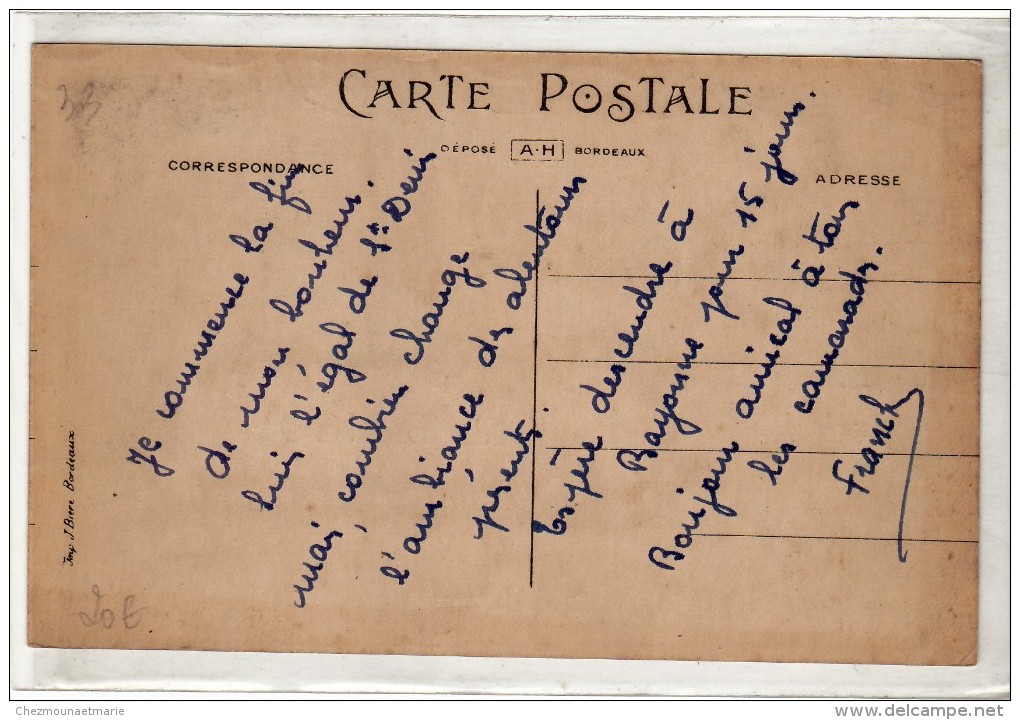 33
CARTE POSTALE
DÉPOSÉ A·H BORDEAUX
CORRESPONDANCE
ADRESSE
Je commence la fin
de mon bonheur.
l'égal de St Denis
mais, combien change
l'ambiance des alentours
présents.
Espère descendre à
Bayonne pour 15 jours.
Bonjour amical à tous
les camarades.
Franck
Imp. J. Bière Bordeaux
20€
Chezmounaetmarie
www.delcampe.net